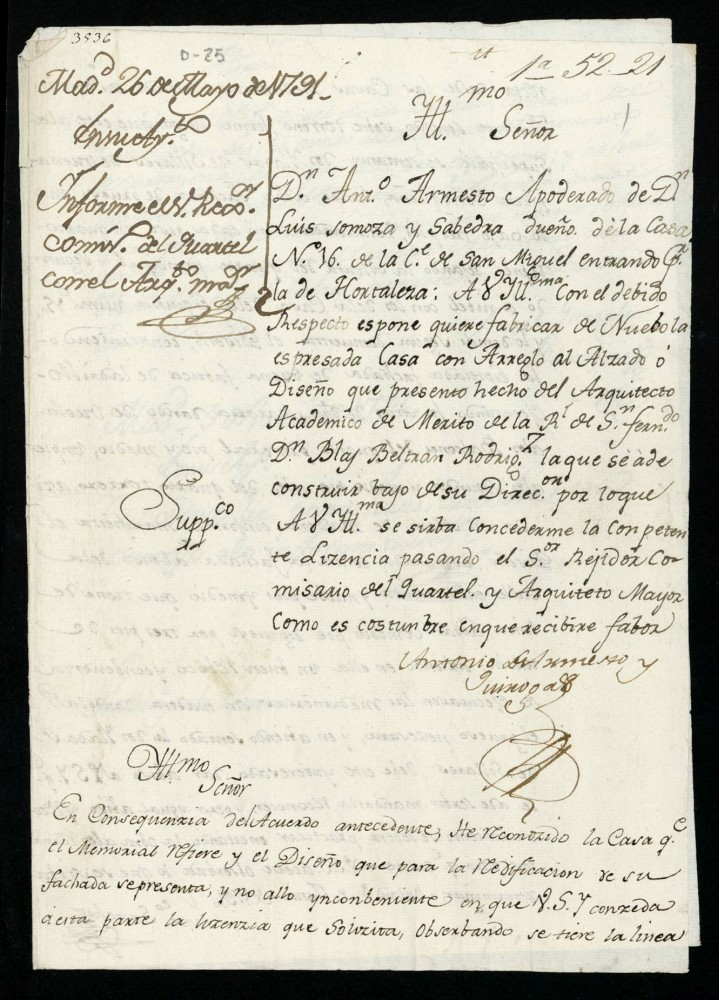 3536
D-25
1ª 52-21
Mad.d 26 de Mayo de 1791
En su Ay.to
Informe el S.r Rex.or
comis.o del Quartel
con el Arq.to m.or
Ill.mo Señor
D.n Ant.o Armesto Apoderado de D.n
Luis somoza y Sabedra dueño de la Casa
N.o 16. de la C.e de San Miguel entrando p.r
la de Hortaleza: A V Yll.ma Con el debido
Respecto espone quiere fabricar de Nuebo la
espresada Casa con Arreglo al Alzado ó
Diseño que presento hecho del Arquitecto
Academico de Merito de la R.l de S.n fern.do
D.n Blas Beltran Rodrig.z la que se ade
construir bajo de su Direc.on por loque
Supp.co
A V Yll.ma se sirba Concederme la Conpeten
te Lizencia pasando el S.or Rejidor Co-
misario del Quartel. y Arquiteto Mayor
Como es costunbre enque recibire fabor
Antonio de Armesto y
Quiroga
Yll.mo
Señor
En Consequenzia del Acuerdo antecedente, He reconozido la Casa q.e
el Memorial refiere y el Diseño que para la Redificacion de su
fachada se presenta, y no allo ynconbeniente en que V.S.Y conzeda
á esta parte la lizenzia que Solizita, Obserbando se tire la linea